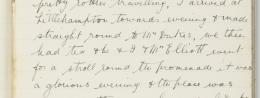 pretty rotten travelling, I arrived at
Littlehampton towards evening & made
straight round to Mr Dukes, we then
had tea & & I & Mr Elliott went
for a stroll round the promenade it was
a glorious evening & the place was